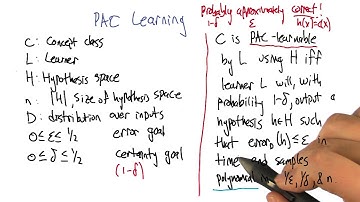 PAC Learning
C: Concept class
L: Learner
H: Hypothesis space
n: |H|, size of hypothesis space
D: distribution over inputs
0≤ε≤1/2 error goal
0≤δ≤1/2 certainty goal
(1-δ)
probably approximately correct!
1-δ ε h(x)=c(x)
C is PAC-learnable
by L using H iff
learner L will, with
probability 1-δ, output a
hypothesis h∈H such
that error_D(h)≤ε in
time and samples
polynomial in 1/ε, 1/δ, & n